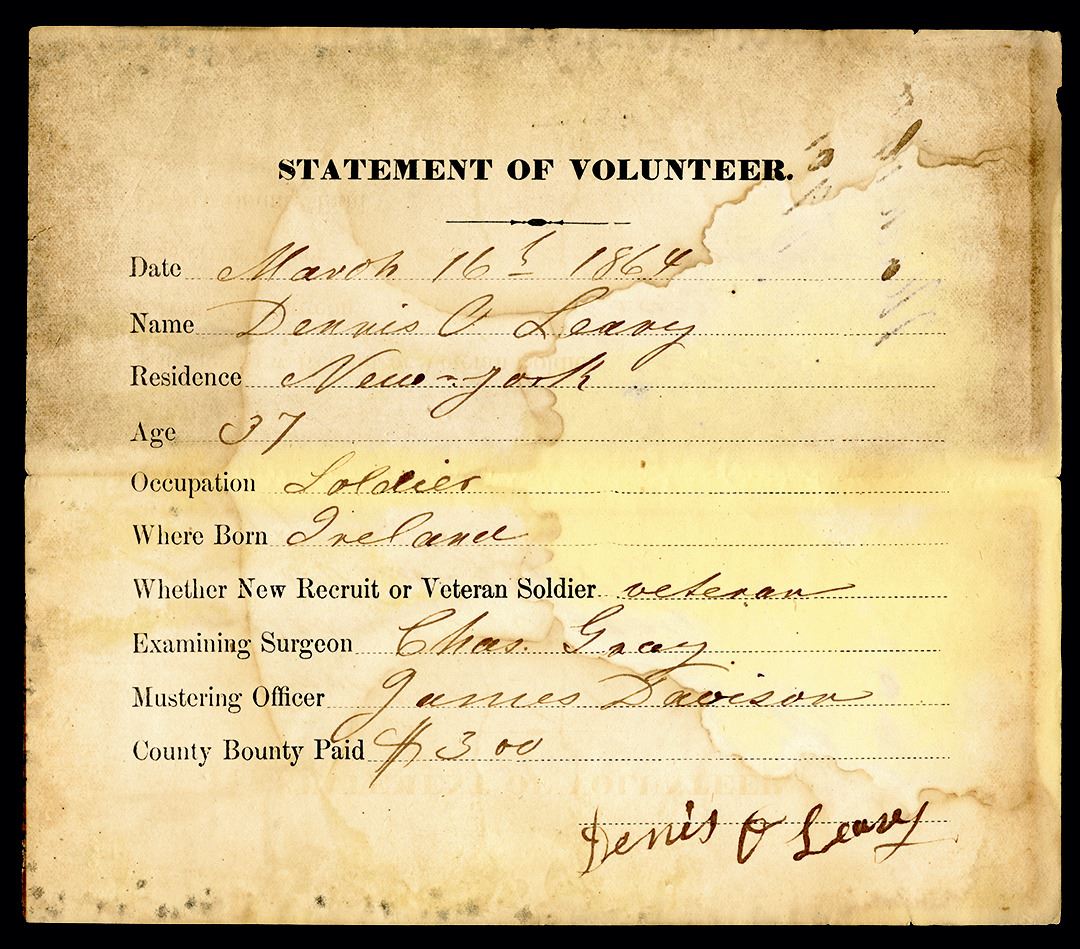 STATEMENT OF VOLUNTEER.
Date March 16th 1864
Name Dennis O Leary
Residence New-york
Age 37
Occupation Soldier
Where Born Ireland
Whether New Recruit or Veteran Soldier veteran
Examining Surgeon Chas. Gray.
Mustering Officer James Davison
County Bounty Paid $300
Denis O Leary